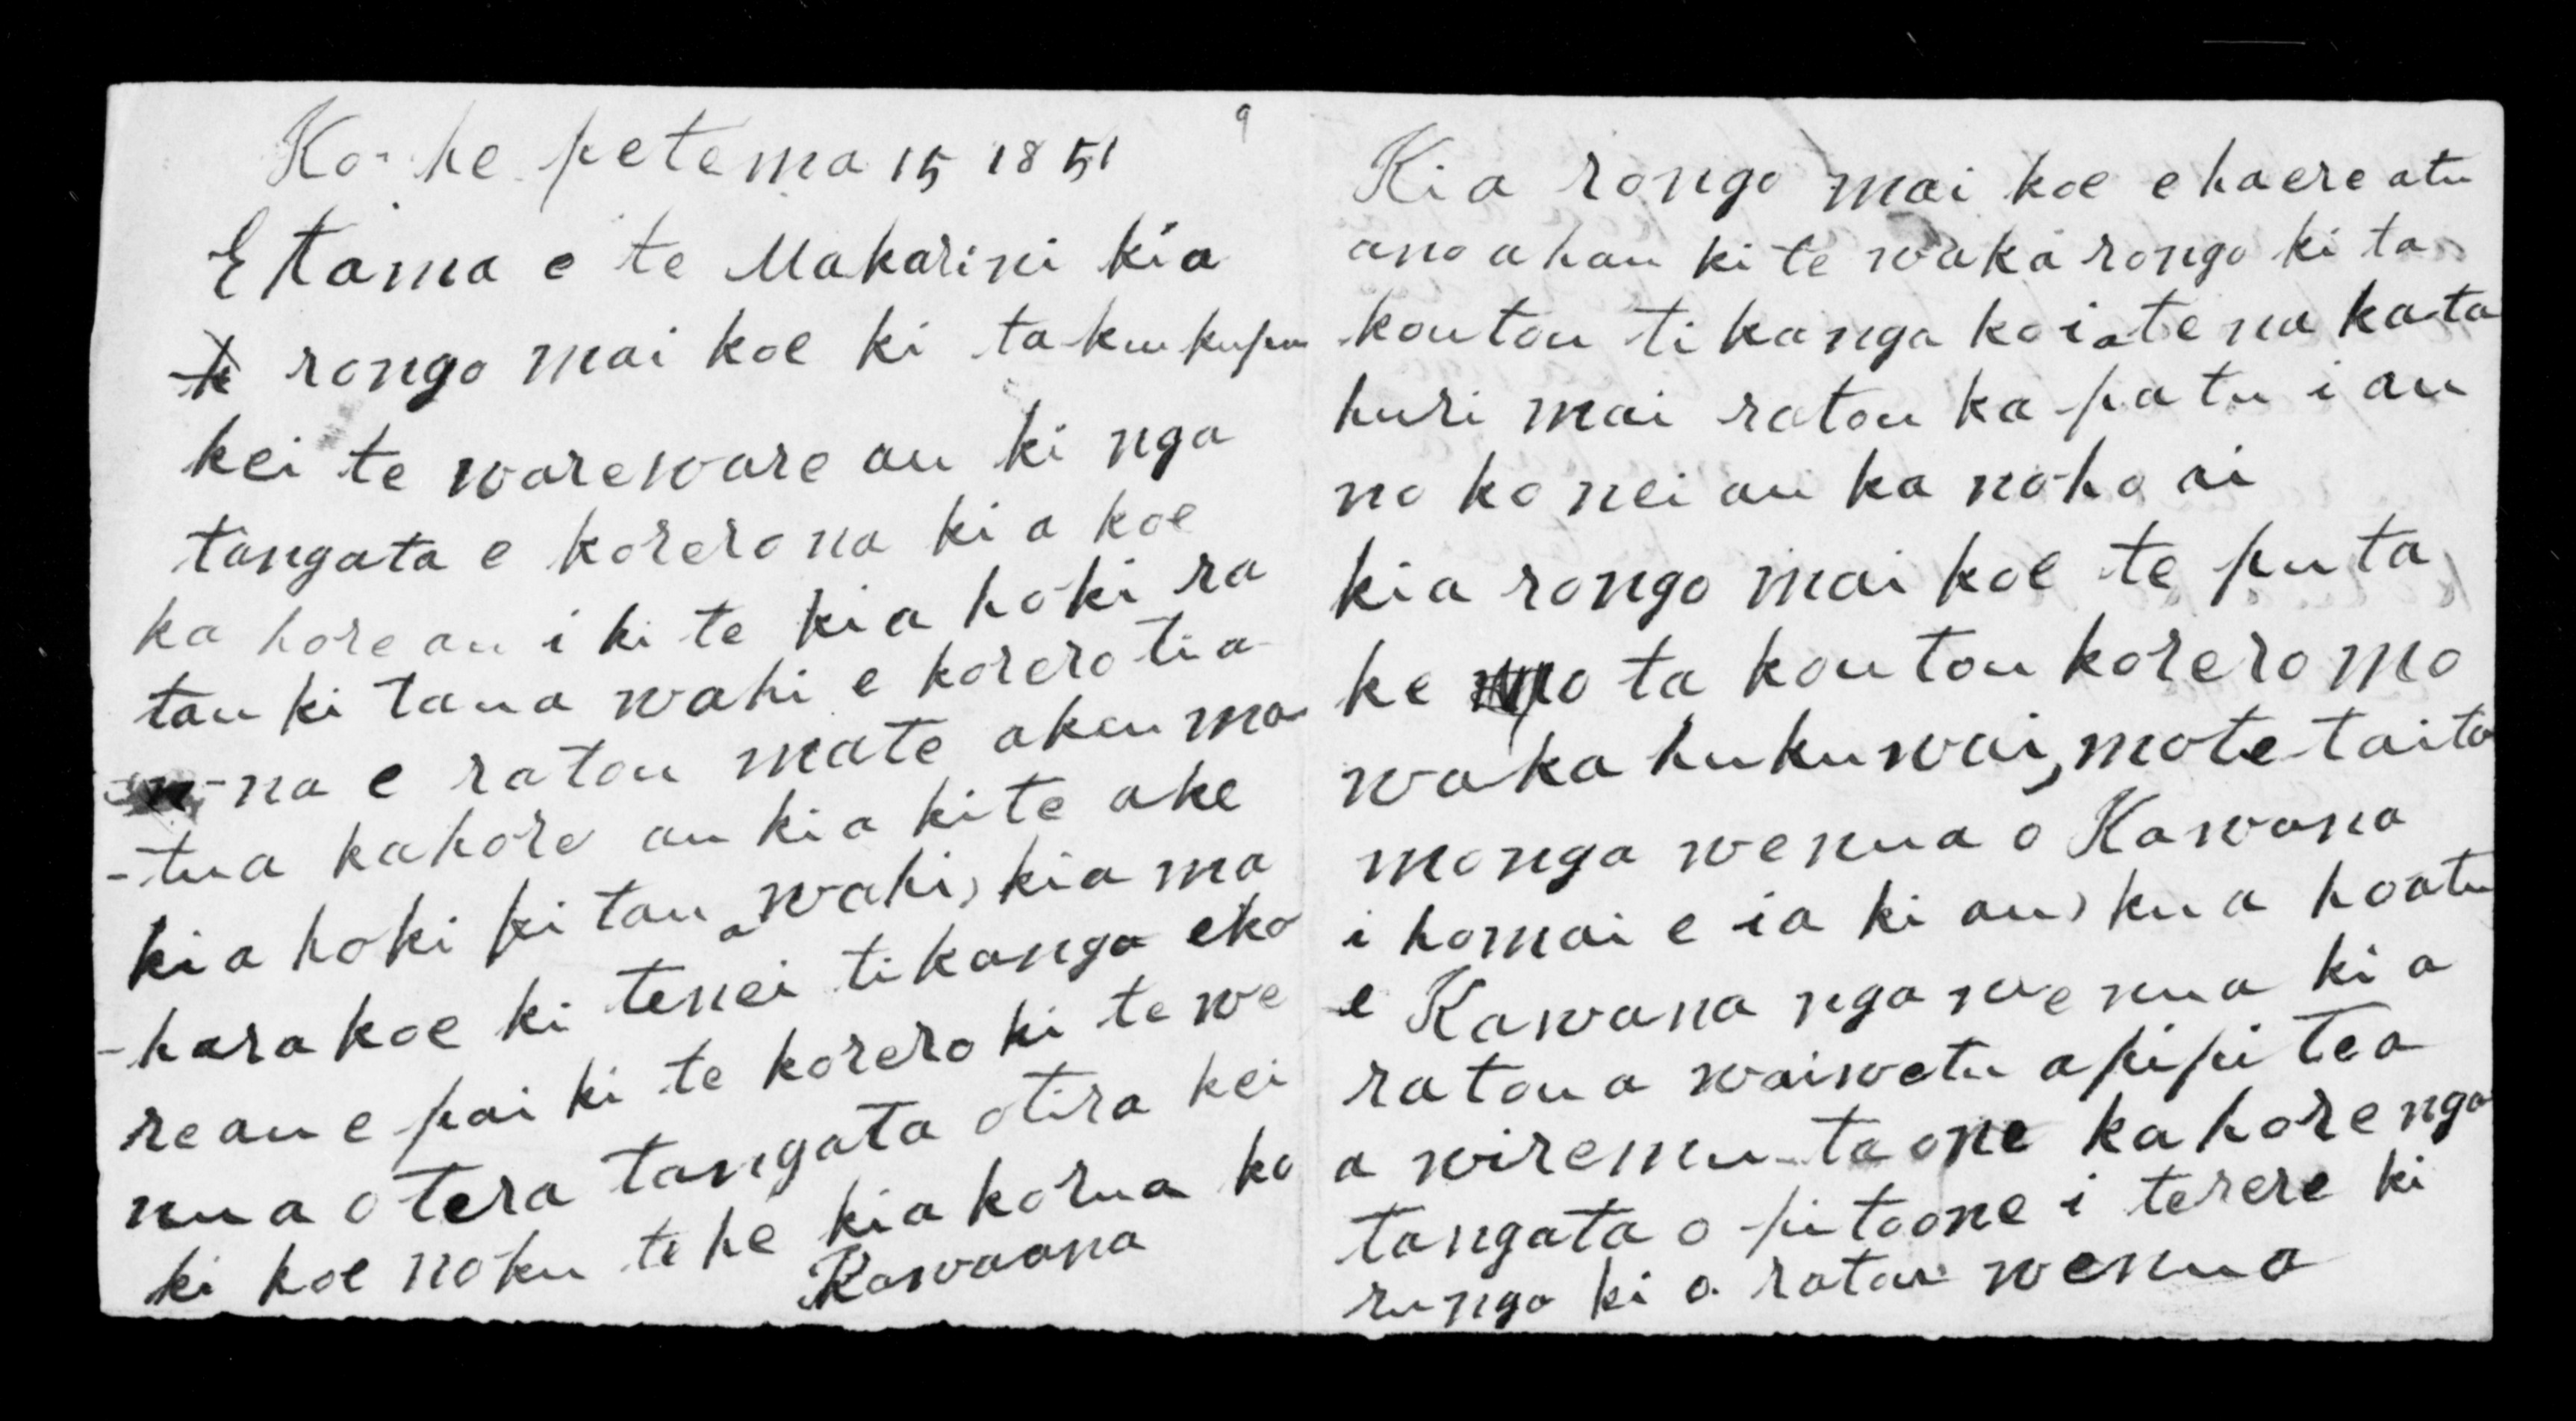 Ko he petema 15 1851
9
E tama e te Makarini kia
rongo mai koe ki taku kupu
kei te wareware au ki nga
tangata e korero na ki a koe
ka hore au i ki te kia hoki ra
tau ki taua wahi e korero tia
-na e ratou mate akau ma
-tua kahore au kia kite ake
kia hoki ki taua wahi, kia ma
-hara koe ki tenei tikanga eko
re au e pai ki te korero ki te we
nua o tera tangata otira kei
ki koe noku te he kia korua ko
Kawaana
Kia rongo mai koe e haere atu
ano ahau ki te waka rongo ki ta
koutou tikanga koia te na ka ta
huri mai ratou ka patu i au
no ko nei au ka noho ai
kia rongo mai koe te puta
ke mo ta koutou korero mo
waka hukuwai, mo te taita
monga wenua o Kawana
i homai e ia ki au, kua hoatu
e Kawana nga wenua ki a
ratou a waiwetu a pipitea
a wiremu taone ka hore nga
tangata o pitoone i terere ki
runga ki a ratou wenua